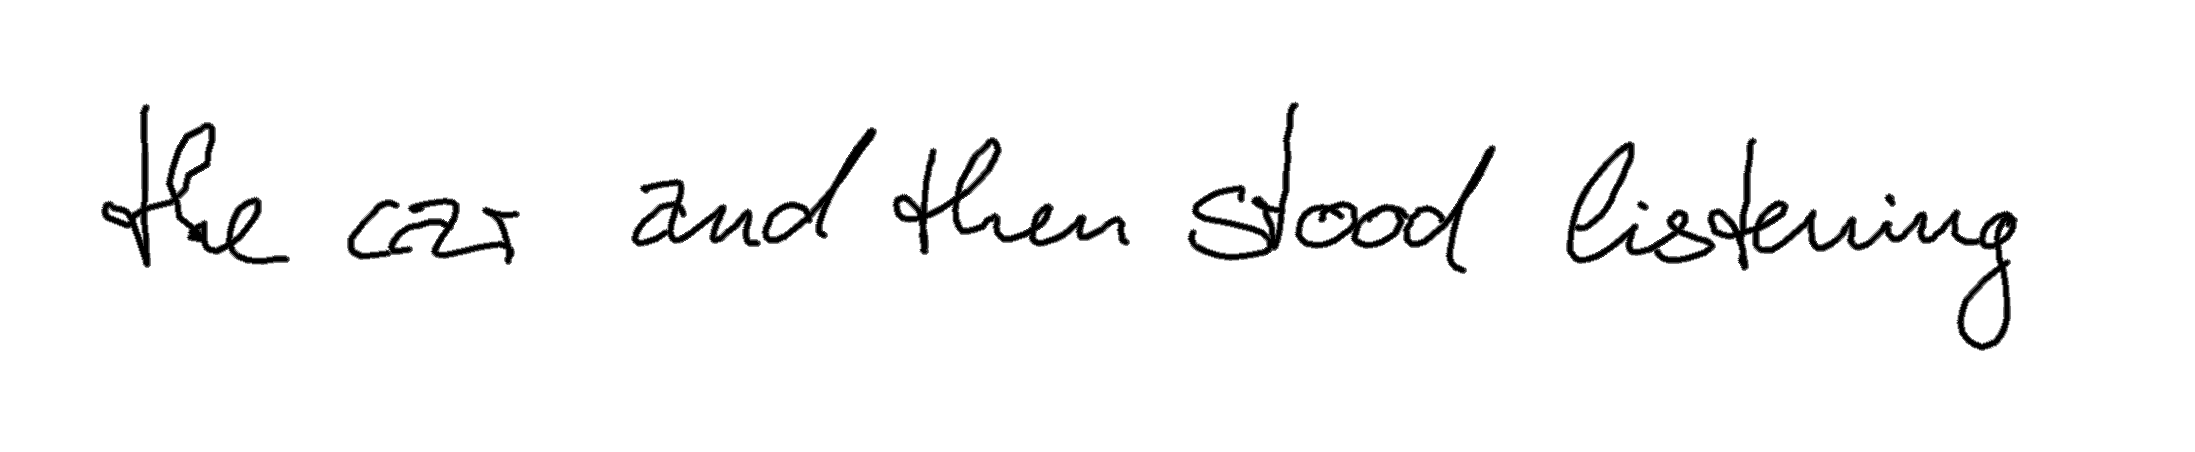 the car and then stood listening